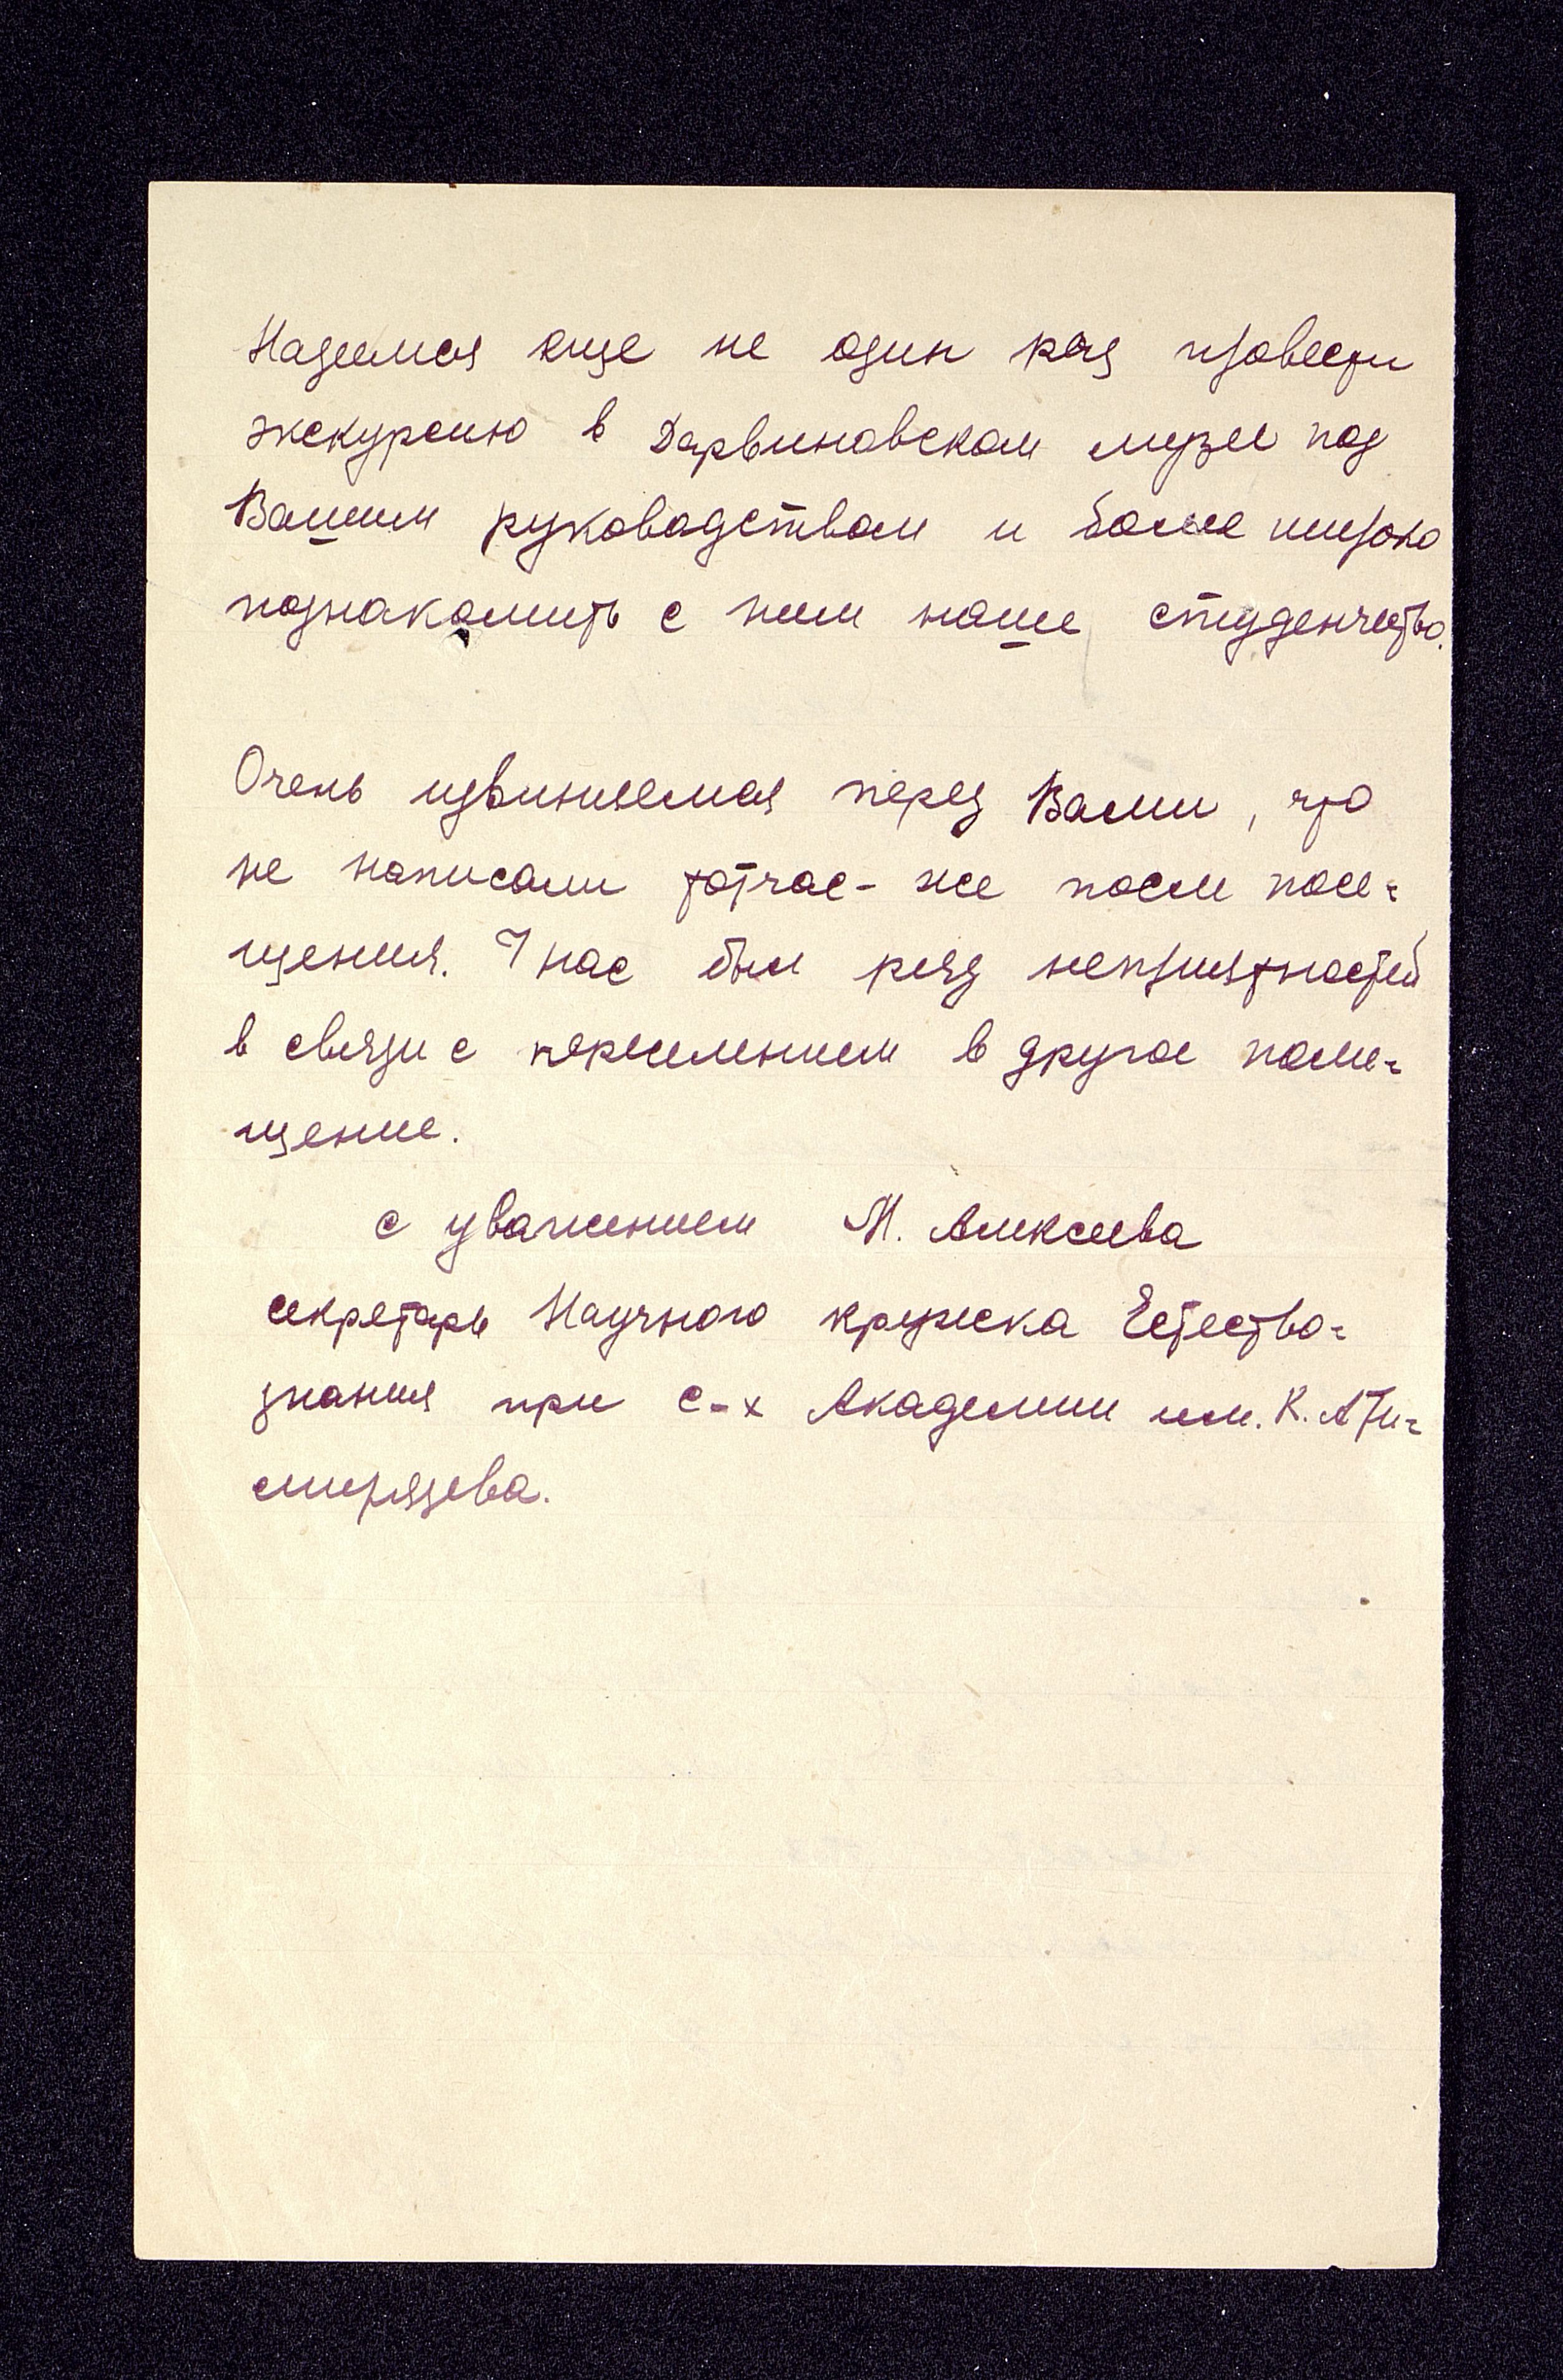 Надеемся еще не один раз провести
экскурсию в Дарвиновском музее под
Вашим руководством и более широко
познакомить с ним наше студенчество.
Очень извиняемся перед Вами, что
не написали тотчас-же после посе-
щения. У нас был ряд неприятностей
в связи с переселением в другое поме-
щение.
с уважением М. Алексеева
секретарь Научного кружка Естество-
знания при С-х Академии им. К. А Ти-
мирязева.